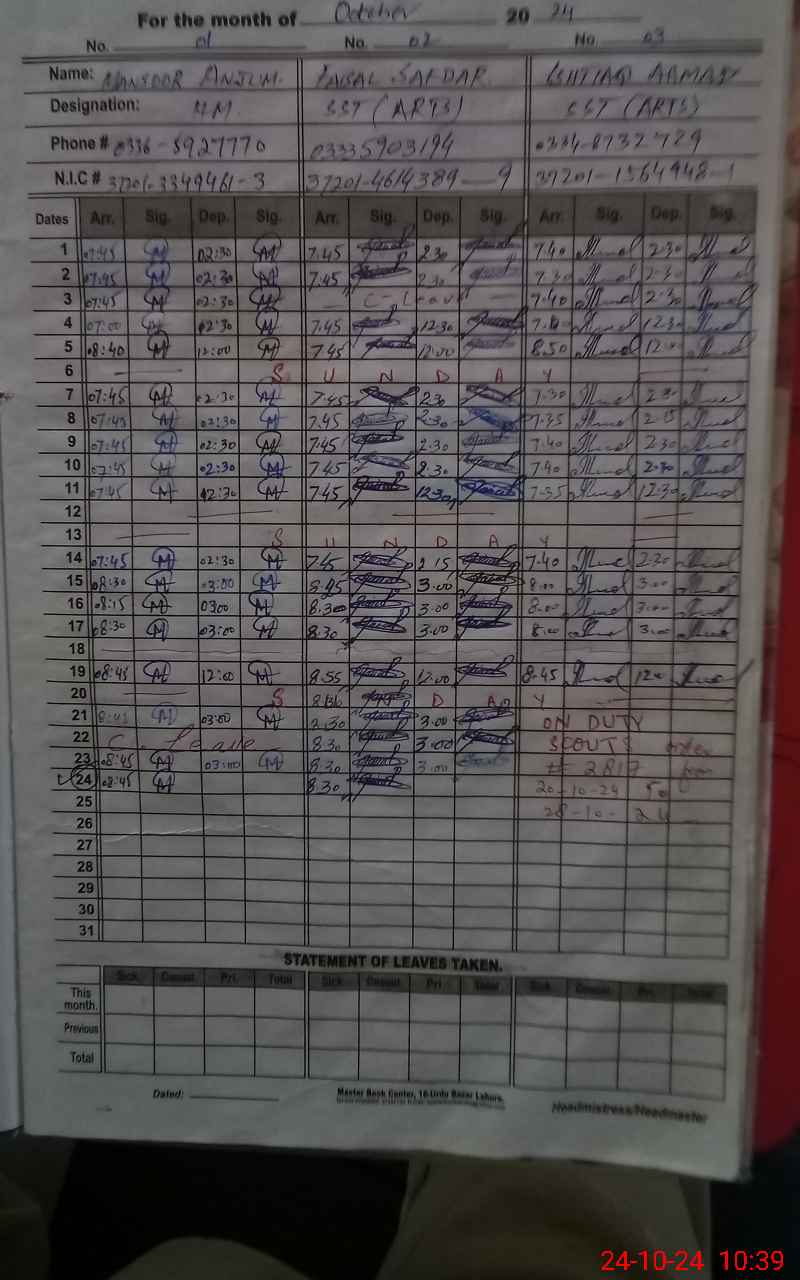 For the month of October 20 24
No. 01 No. 02 No 03
Name: MANSOOR ANJUM. FAISAL SAFDAR ISHTIAQ AHMAD
Designation: HM SST (ARTS) SST (ARTS)
Phone # 0336-5927770 03335903194 0334-8732729
N.I.C # 37201-3349461-3 37201-4614389-9 37201-1564948-1
Dates Arr. Sig. Dep. Sig. Arr. Sig. Dep. Sig. Arr. Sig. Dep. Sig.
1 07:45 M 02:30 M 7.45 2.30 7.40 2.30
2 07:45 M 02:30 M 7.45 2.30 7.30 2.30
3 07:45 M 02:30 M C-Leave 7.40 2.30
4 07:00 M 12:30 M 7.45 12.30 12.30
5 08:40 M 12:00 M 7.45 12.00 8.50
6 S U N D A Y
7 07:45 M 02:30 M 7.45 2.30 7.30 2.30
8 07:45 M 02:30 M 7.45 2.30 7.35 2.15
9 07:45 M 02:30 M 7.45 2.30 7.40 2.30
10 07:45 M 02:30 M 7.45 2.30 7.40 2.30
11 07:45 M 12:30 M 7.45 12.30 7.35 12.30
12
13 S U N D A Y
14 07:45 M 02:30 M 7.45 2.15 7.40 2.30
15 08:30 M 03:00 M 8.45 3.00 8.00 3.00
16 08:15 M 0300 M 8.30 3.00 8.00 3.00
17 08:30 M 03:00 M 8.30 3.00 8.00 3.00
18
19 08:45 M 12:00 M 8.55 12.00 8.45 12.00
20 S D A Y
21 8:45 M 03:00 M 3.00 ON DUTY
22 C. Leave 8.30 3.00 SCOUTS
23 08:45 M 03:00 M 8.30 3.00 # 2817
24 08:45 M 8.30 20-10-24 to
25 28-10-24
26
27
28
29
30
31
STATEMENT OF LEAVES TAKEN.
Sick. Casual. Pri. Total Sick. Casual. Pri. Total Sick. Casual. Pri. Total
This month.
Previous
Total
Dated: Master Book Center, 16-Urdu Bazar Lahore. Headmistress/Headmaster
24-10-24 10:39